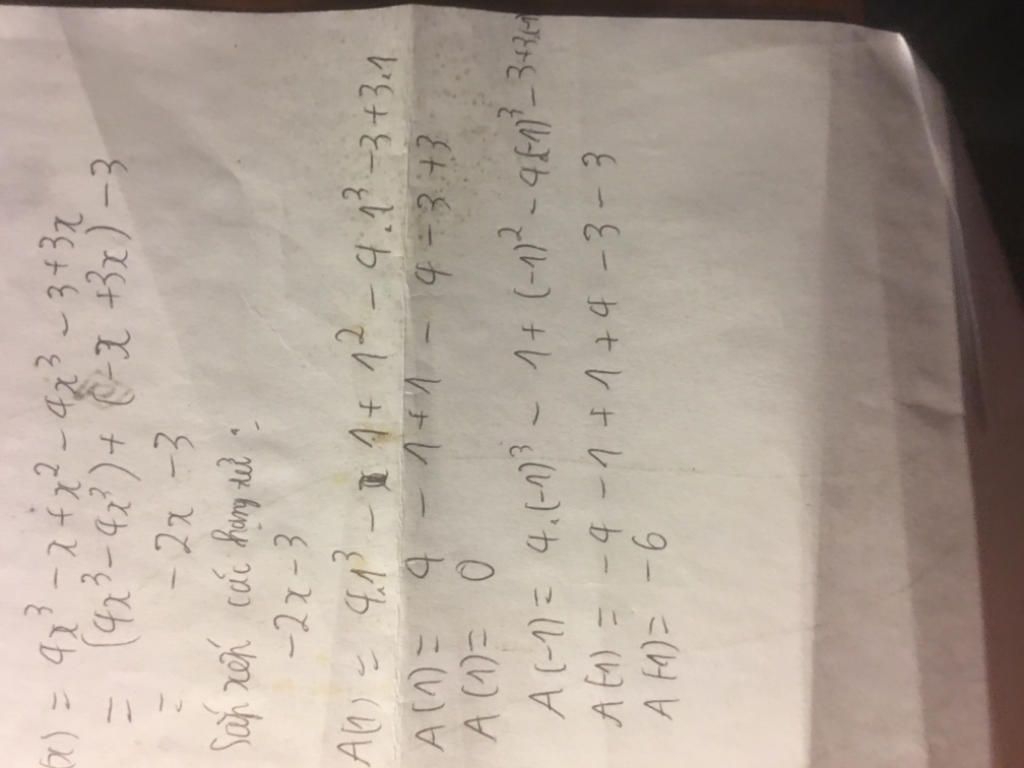 (x) = 4x³ - x + x² - 4x³ - 3 + 3x
= (4x³ - 4x³) + (-x + 3x) - 3
= - 2x - 3
Sắp xếp các hạng tử :
-2x - 3
A(1) = 4.1³ - 1 + 1² - 4.1³ - 3 + 3.1
A(1) = 4 - 1 + 1 - 4 - 3 + 3
A(1) = 0
A(-1) = 4.(-1)³ - 1 + (-1)² - 4.(-1)³ - 3 + 3.(-1)
A(-1) = -4 - 1 + 1 + 4 - 3 - 3
A(-1) = -6